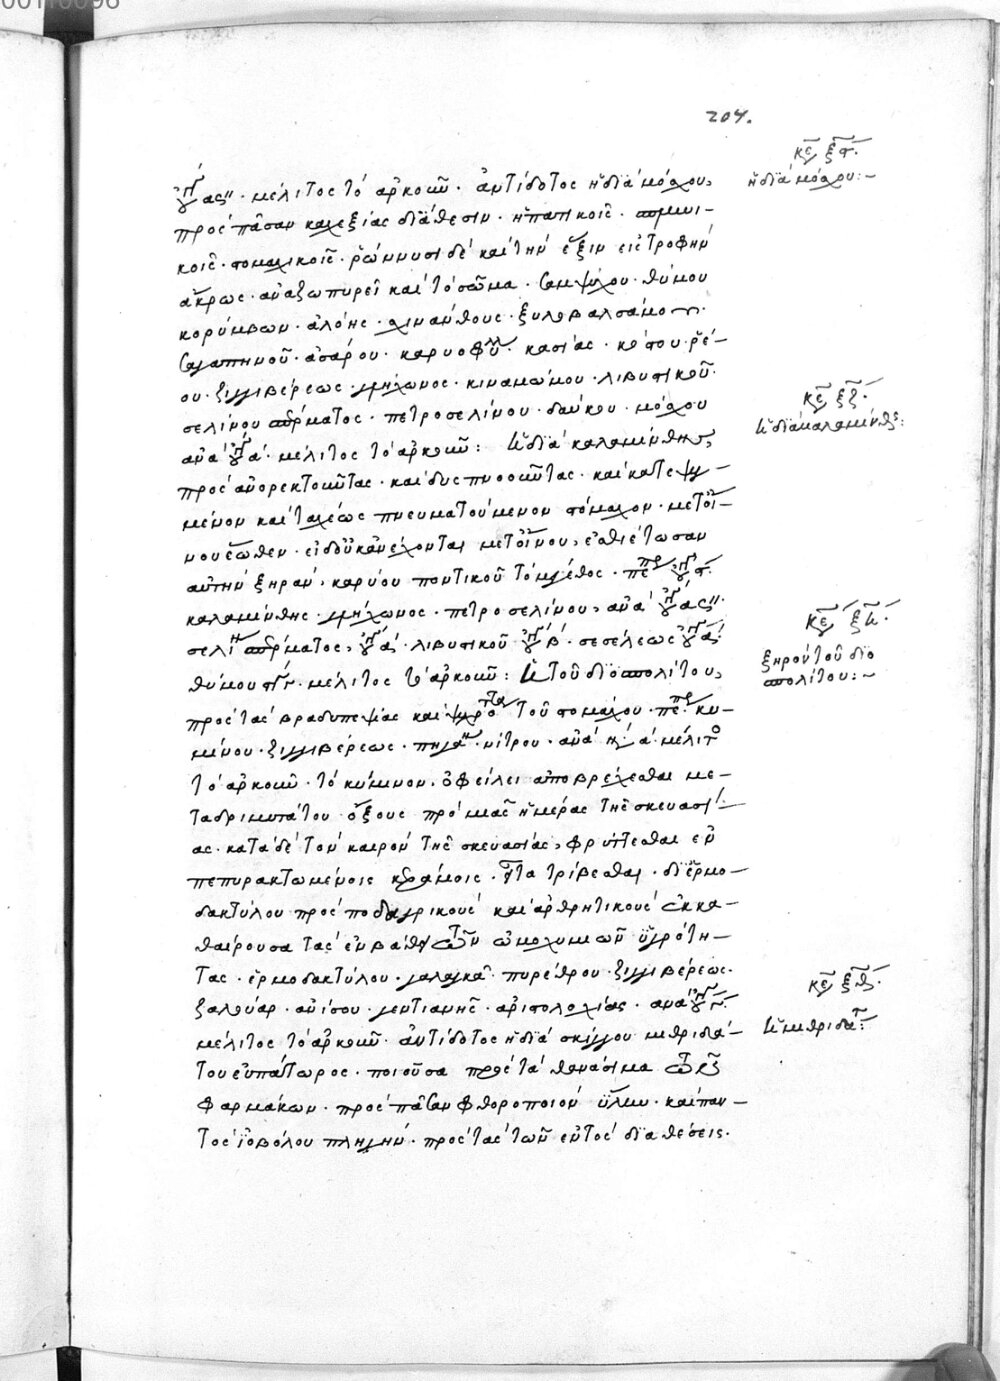 204.
κε ξϛ.
ἡ διὰ μόσχου:-
μέλιτος τὸ ἀρκοῦν. ἀντίδοτος ἡ διὰ μόσχου,
πρὸς πᾶσαν καχεξίας διάθεσιν. ἡπατικοῖς.
κοῖς. στομαχικοῖς. ῥώννυσι δὲ καὶ τὴν ἕξιν εἰς τροφὴν
ἄκρως. ἀναζωπυρεῖ καὶ τὸ σῶμα. σαμψύχου. θύμου
κορύμβων. ἀλόης. οἰνάνθους. ξυλοβαλσάμου.
σαγαπηνοῦ. ἀσάρου. καρυοφύλλου. κασίας. κόστου. ῥέ-
ου. ζιγγιβέρεως. μήκωνος. κιναμώμου. λιβυστικοῦ.
σελίνου σπέρματος. πετροσελίνου. δαύκου. μόσχου
κε ξζ.
ἡ διὰ καλαμίνθης:
ἀνὰ α. μέλιτος τὸ ἀρκοῦν: ἡ διὰ καλαμίνθης,
πρὸς ἀνορεκτοῦντας. καὶ δυσπνοοῦντας. καὶ κατεψυ-
μένον καὶ ταχέως πνευματούμενον στόμαχον. μετ' οἴ-
νου ἕωθεν. εἰ δ' οὐκ ἀνέχονται μετ' οἴνου, ἐσθιέτωσαν
αὐτὴν ξηράν, καρύου ποντικοῦ τὸ μέγεθος.
καλαμίνθης. μήκωνος. πετροσελίνου, ἀνὰ
σελίνου σπέρματος, α. λιβυστικοῦ β. σεσέλεως α.
κε ξη.
ξηρὸν τοῦ διο
σπολίτου:-
θύμου μέλιτος τὸ ἀρκοῦν: τοῦ διοσπολίτου,
πρὸς τὰς βραδυπεψίας καὶ ψυχρότητα τοῦ στομάχου. κυ-
μίνου. ζιγγιβέρεως. πηγάνου. νίτρου. ἀνὰ μέλιτος
τὸ ἀρκοῦν. τὸ κύμινον. ὀφείλει ἀποβρέχεσθαι με-
τὰ δριμυτάτου ὄξους πρὸ μιᾶς ἡμέρας τῆς σκευασί-
ας. κατὰ δὲ τὸν καιρὸν τῆς σκευασίας, φρύττεσθαι ἐν
πεπυρακτωμένοις κεράμοις. εἶτα τρίβεσθαι. δι' ἑρμο-
δακτύλου πρὸς ποδαγρικοὺς καὶ ἀρθριτικοὺς ἐκκα-
θαίρουσα τὰς ἐν βάθει τῶν ὑγρότη-
τας. ἑρμοδακτύλου. πυρέθρου. ζιγγιβέρεως.
κε ξθ.
ἀνίσου. γεντιανῆς. ἀριστολοχίας. ἀνὰ
μέλιτος τὸ ἀρκοῦν. ἀντίδοτος ἡ διὰ σκίγγου μιθριδά-
ἡ μιθριδάτ:
του εὐπάτωρος. ποιοῦσα πρὸς τὰ θανάσιμα τῶν
φαρμάκων. πρὸς πᾶσαν φθοροποιὸν ὕλην. καὶ παν-
τὸς ἰοβόλου πληγήν. πρὸς τὰς τῶν ἐντὸς διαθέσεις.